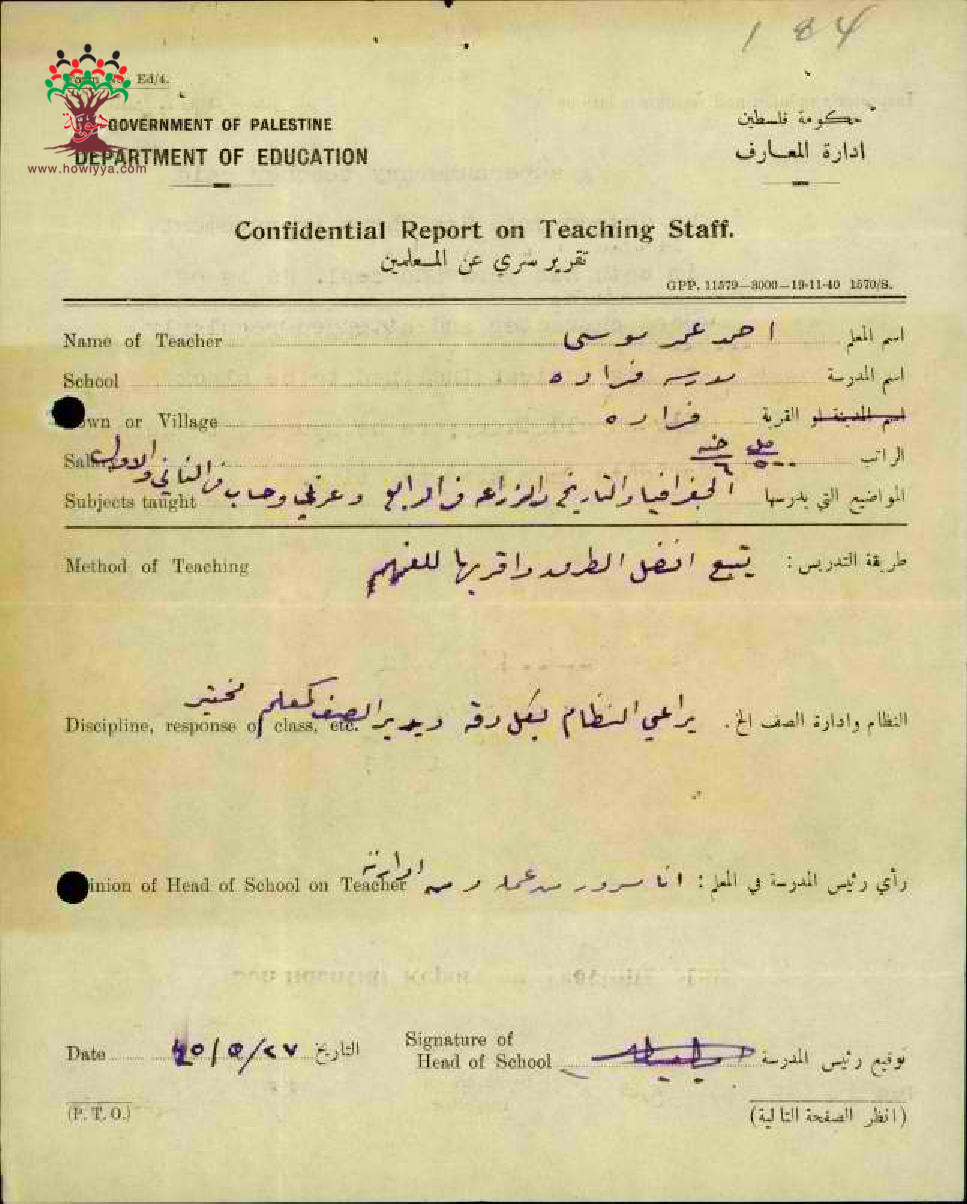 184
Ed/4.
هوية
www.howiyya.com
GOVERNMENT OF PALESTINE
DEPARTMENT OF EDUCATION
حكومة فلسطين
ادارة المعارف
Confidential Report on Teaching Staff.
تقرير سري عن المعلمين
GPP. 11579—3000—19-11-40 1570/S.
Name of Teacher احمد عمر موسى اسم المعلم
School مدرسة فراده اسم المدرسة
own or Village فراده اسم المدينة او القرية
مل جنيه
٥٠٠ ٦ الراتب
Subjects taught الجغرافيا والتاريخ والزراعه في الرابع وعربي وحساب في الثاني والاول المواضيع التي يدرسها
Method of Teaching يتبع افضل الطرق واقربها للفهم طريقة التدريس :
Discipline, response of class, etc. يراعي النظام بكل دقه ويدير الصف كمعلم مختبر النظام وادارة الصف الخ.
inion of Head of School on Teacher انا مسرور من عمله ومن ادارته رأي رئيس المدرسة في المعلم :
Date ٢٧/٥/ التاريخ
Signature of
Head of School توقيع رئيس المدرسة
(P. T. O.) (انظر الصفحة التالية)